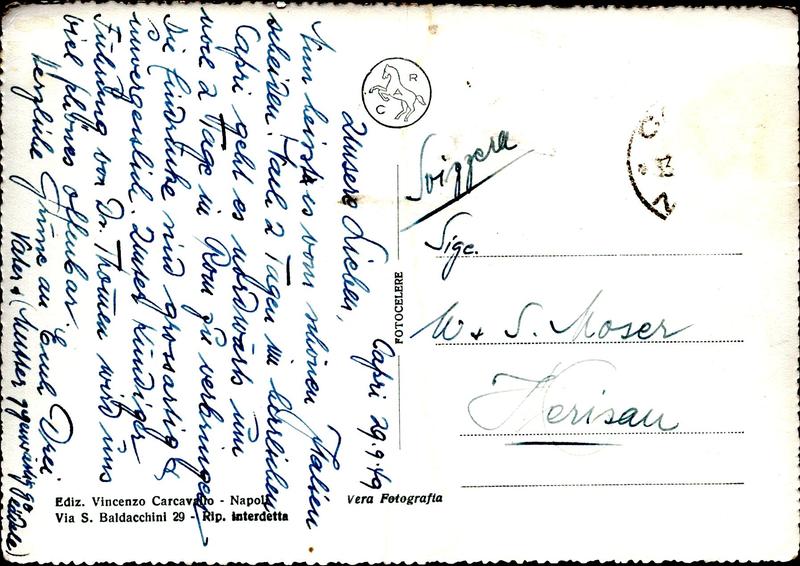 Capri 29.9.49
Unsere Lieben,
Nun heisst es vom schönen Italien
scheiden. Nach 2 Tagen im herrlichen
Capri geht es nordwärts um
noch 2 Tage in Rom zu verbringen
Die Eindrücke sind grossartig &
unvergesslich. Unter kundiger
Führung von Dr. Thomen wird uns
viel schönes offenbar
Herzliche Grüsse an Euch Drei
Vater & Mutter gegenwärtig
R A C
Svizzera
Sige.
W & S. Moser
Herisau
FOTOCELERE
Vera Fotografia
Ediz. Vincenzo Carcavallo - Napoli
Via S. Baldacchini 29 - Rip. interdetta